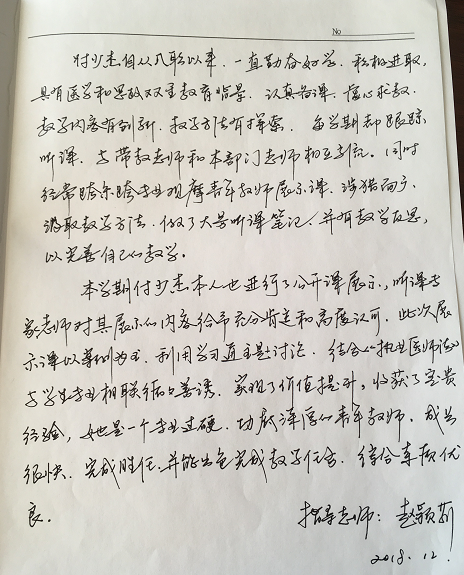 No
付少杰自从入职以来,一直勤奋好学、积极进取,
具有医学和思政双重教育背景、认真备课、虚心求教、
教学内容有创新、教学方法有探索、每学期都跟踪
听课,与带教老师和本部门老师相互交流。同时
经常跨系跨专业观摩青年教师展示课、涉猎面广、
汲取教学方法、做了大量听课笔记、并有教学反思,
以完善自己的教学。
本学期付少杰本人也进行了公开课展示,听课专
家老师对其展示的内容给予充分肯定和高度认可,此次展
示课以尊师为主、利用学习通主题讨论、结合执业医师法
与学生专业相联循循善诱、实现了价值提升,收获了宝贵
经验,她是一个专业过硬、功底深厚的青年教师,成长
很快、完成胜任,并能出色完成教学任务、综合素质优
良。
指导老师:赵颖莉
2018.12.